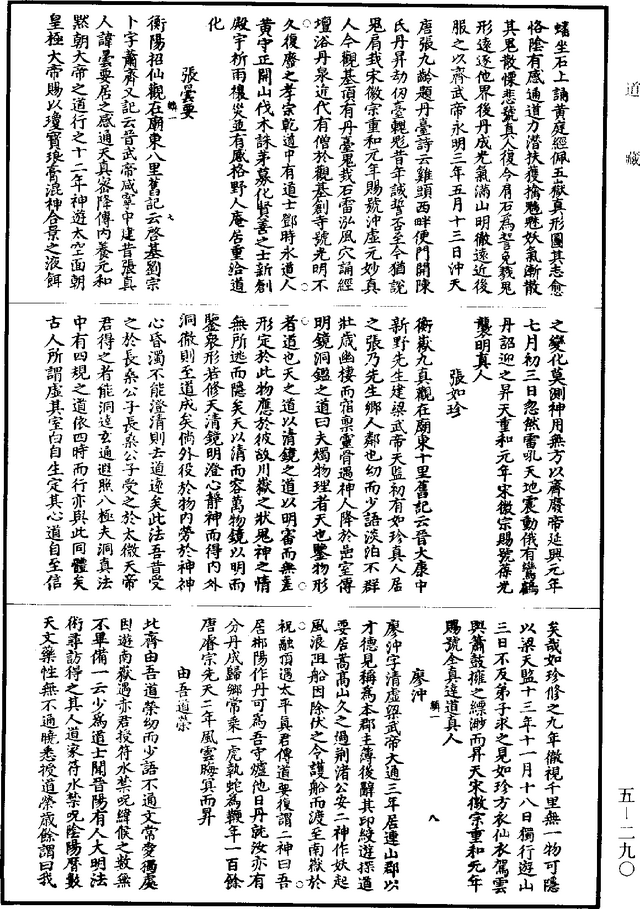 道藏
蟠坐石上誦黄庭經佩五嶽真形圖其志愈
恪陰有感通道力潛扶獲擒魑魅妖氣漸散
其鬼散慄悲號真人復令肩石為誓免戮鬼
形遠逐他界後丹成光氣滿山明徹遠近後
服之以齊武帝永明三年五月十三日沖天
唐張九齡題丹臺詩云雞頭西畔便門開陳
氏丹昇劫仞臺魍魎昔年誠誓否至今猶說
鬼肩哉宋徽宗重和元年賜號沖虛元妙真
人今觀基頂有丹臺鬼哉石雷泓風穴誦經
壇浴丹泉近代有僧於觀基創寺號光明不
久復廢之孝宗乾道中有道士鄧時永道人
黄守正開山伐木誅茅募化賢善之士新創
殿宇祈雨禳災並有感格野人庵居重給道
化
張曇要
衡陽招仙觀在廟東八里舊記云啓基劉宗
卜字蕭齊又記云晉武帝咸寧中建昔張真
人諱曇要居之感通天真密降傳内養元和
黙朝大帝之道行之十二年神遊太空面朝
皇極大帝賜以瓊寶琅膏混神合景之液餌
之變化莫測神用無方以齊廢帝延興元年
七月初三日忽然雷吼天地震動俄有鸞鶴
丹詔迎之昇天重和元年宋徽宗賜號葆光
襲明真人
張如珍
衡嶽九真觀在廟東十里舊記云晉大康中
新野先生建梁武帝天監初有如珍真人居
之張乃先生鄉人鄰也幼而少語淡泊不群
壯歲幽棲而宿稟靈骨遇神人降於嵒室傳
明鏡洞鑑之道曰夫燭物理者天也鑒物形
者道也天之道以清鏡之道以明審而無差
形定於此物應於彼故川嶽之狀鬼神之情
無所逃而隱矣天以清而容萬物鏡以明而
鑒衆形若修天清鏡明澄心靜神而得内外
洞徹則至道成矣倘外役於物内勞於神神
心昏濁不能澄清則去道逺矣此法吾昔受
之於長桑公子長桑公子受之於太微天帝
君得之者能洞達玄通遐照八極夫洞真法
中有四規之道依四時而行亦與此同體矣
古人所謂虛其室白自生定其心道自至信
矣哉如珍修之九年徹視千里無一物可隱
以梁天監十三年十一月十八日獨行遊山
三日不及弟子求之見如珍方衣仙衣駕雲
輿簫鼓擁之縹渺而昇天宋徽宗重和元年
賜號全真達道真人
廖沖
廖沖字清虛梁武帝大通三年居連山郡以
才德見稱為本郡主薄後辭其印綬遊探道
要居嵩髙山久之過荆渚公安二神作妖起
風浪阻船因除伏之令護船而渡至南嶽於
祝融頂遇太平真君傳道要復謂二神曰吾
居郴陽作丹可為吾守爐他日丹就汝亦有
分丹成歸鄉常乗一虎執蛇為鞭年一百餘
唐睿宗先天二年風雲晦冥而昇
由吾道榮
北齊由吾道榮幼而少語不通文常愛獨處
因遊南嶽遇亦君授符水禁呪緯候之数無
不畢備一云少為道士聞晉陽有人大明法
術尋訪得之其人道家符水禁呪隂陽曆數
天文藥性無不通曉悉授道榮歲餘謂曰我
五—二九〇